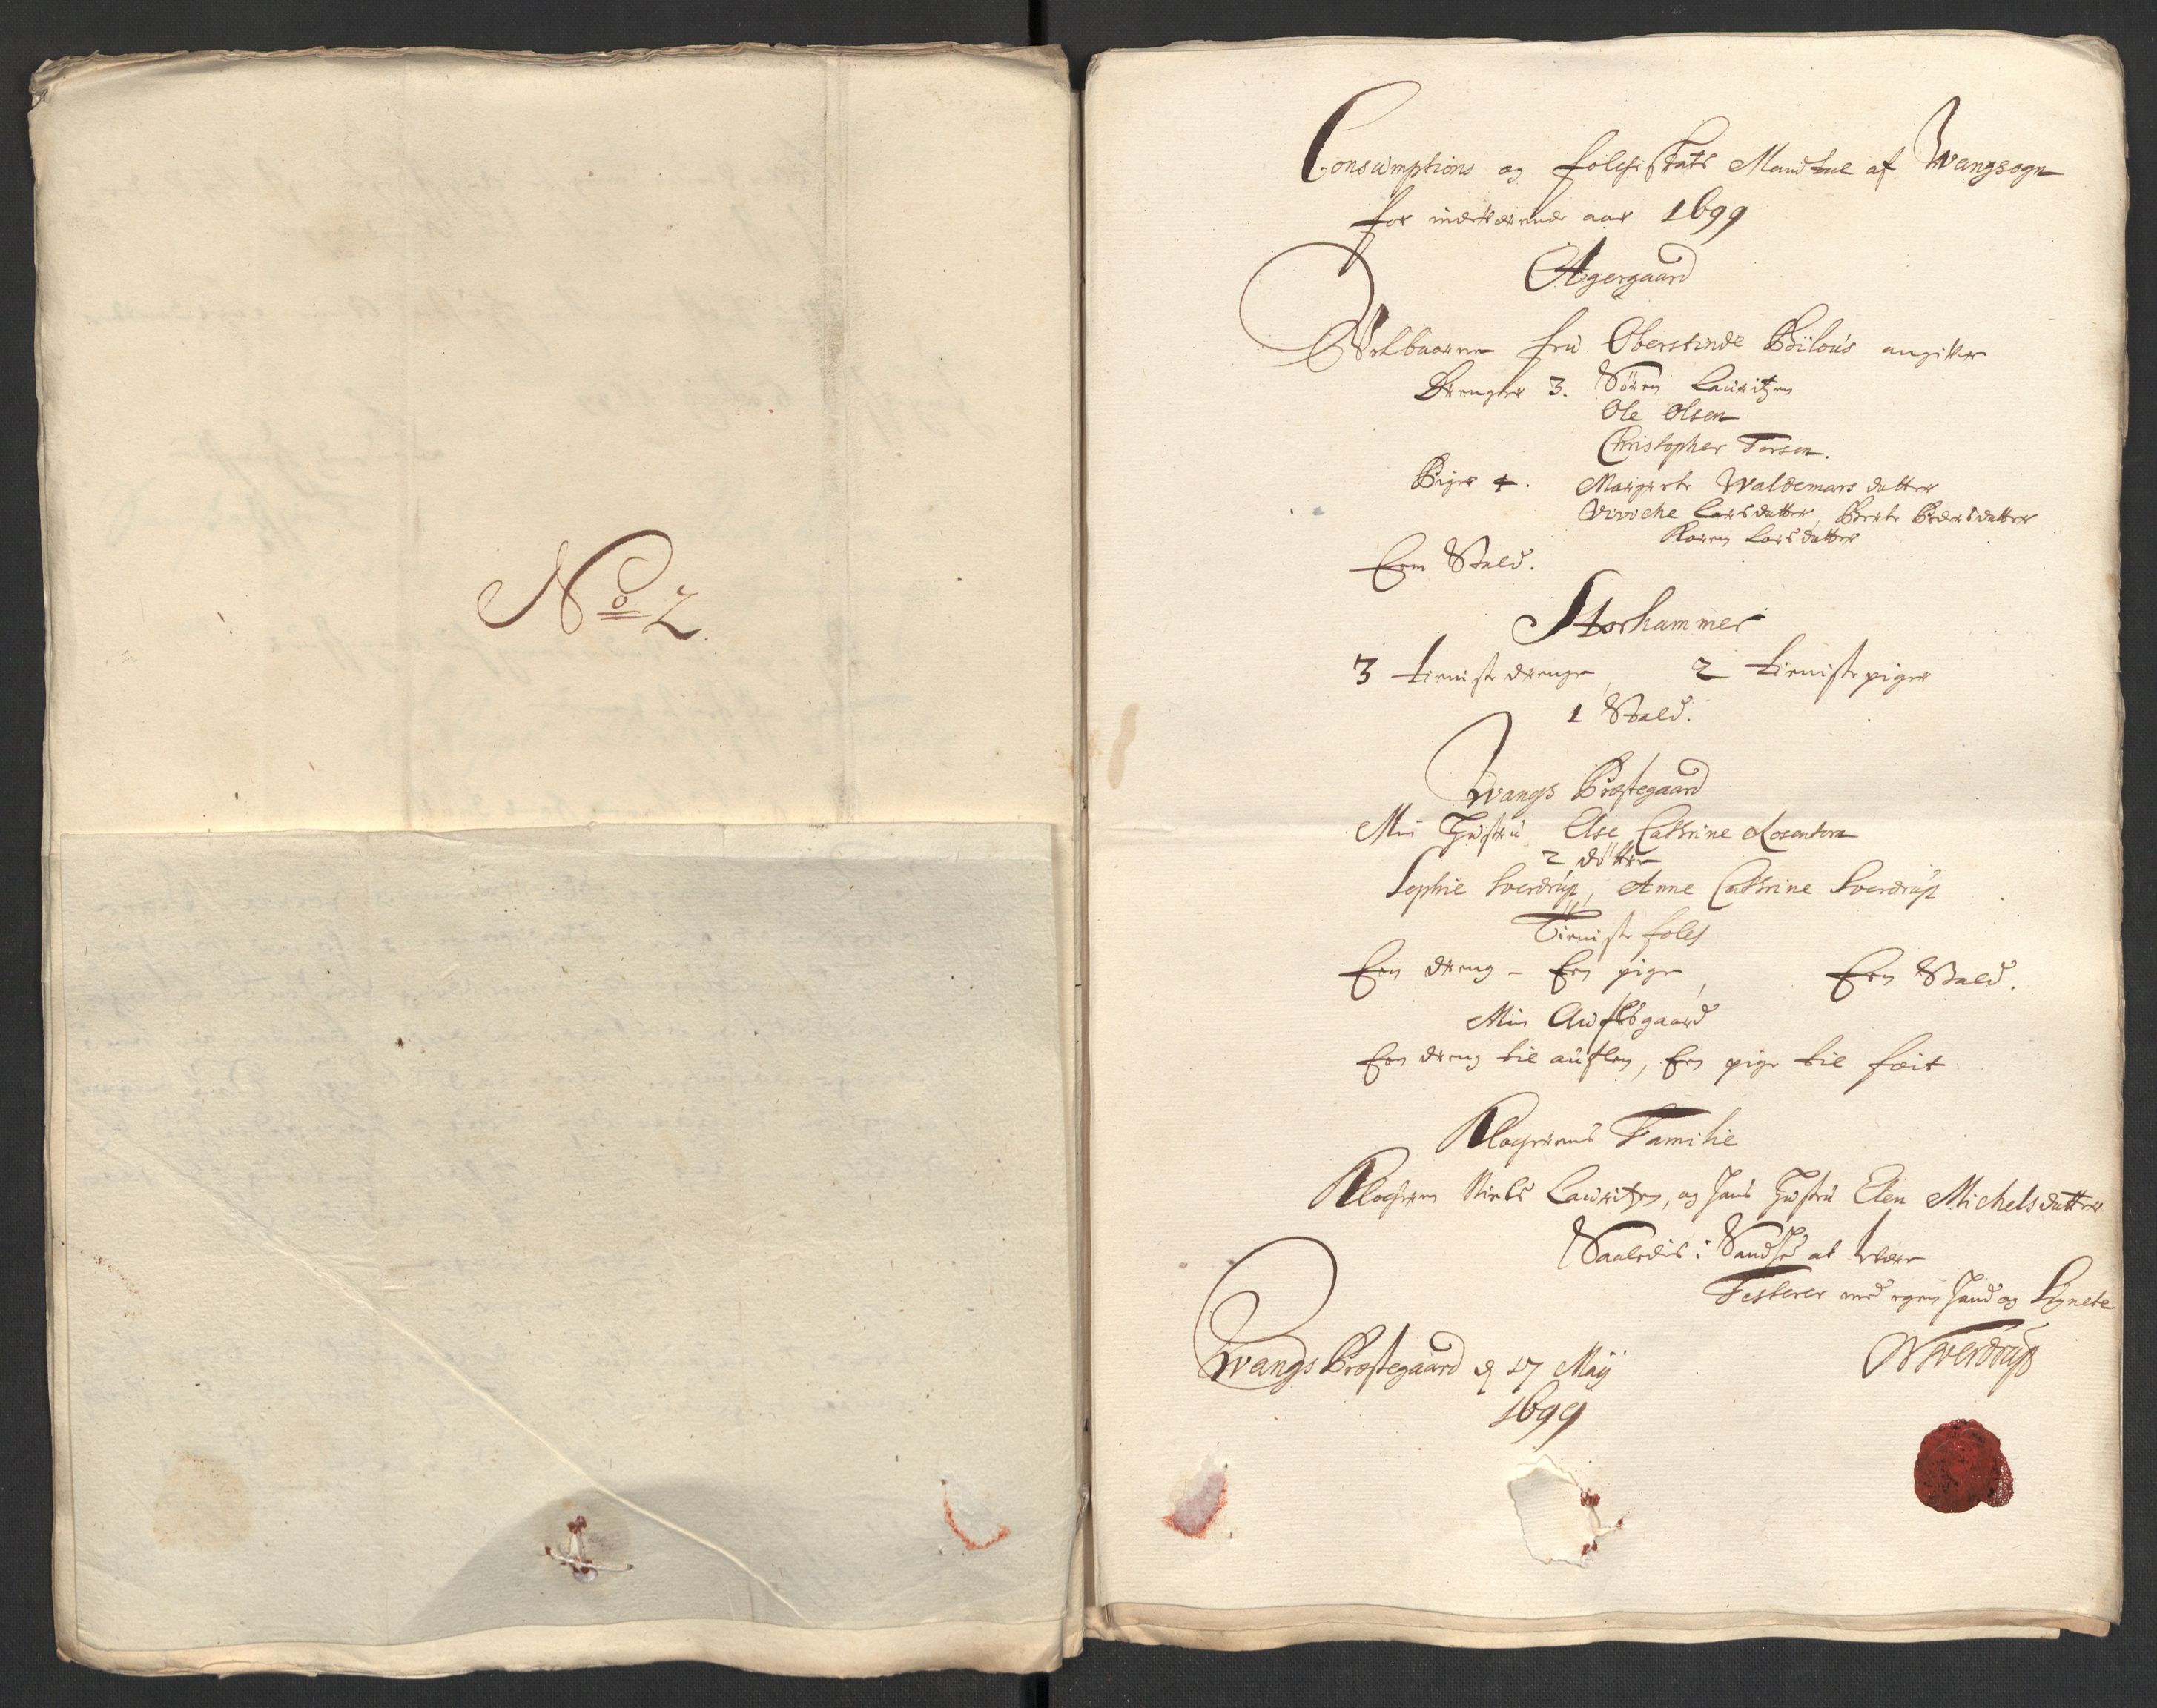 No 2.
Consumptions og folcheskats Mandtal af Wangsogn
for inderværende aar 1699
Agergaard
Velbaarne frue Oberstinde Bülous angifter
Drenger 3. Søren Lauritzen
Ole Olsen
Christopher Torsen.
Piger 4. Margrete Waldemars datter
Vivicke Larsdatter, Berte Pedersdatter
Karen Larsdatter
Een Stald.
Storhammer
3 tieniste drenge, 2 tieniste piger
1 Stald.
Wangs Præstegaard
Min Hustru Else Cathrine Rosentorn
2 døttre
Sophie Sverdrup, Anne Cathrine Sverdrup
Tieniste folch
Een dreng - Een pige, Een Stald.
Min Auflsgaard
Een dreng til auflen, Een pige til fæit
Klocherens Familie
Klocheren Niels Lauritzen, og hans Hustru Elen Michelsdatter
Saaledis i Sandhed at være
Testerer med egen haand og Signete
Wangs Præstegaard d 17 Maÿ
Sverdrup
1699